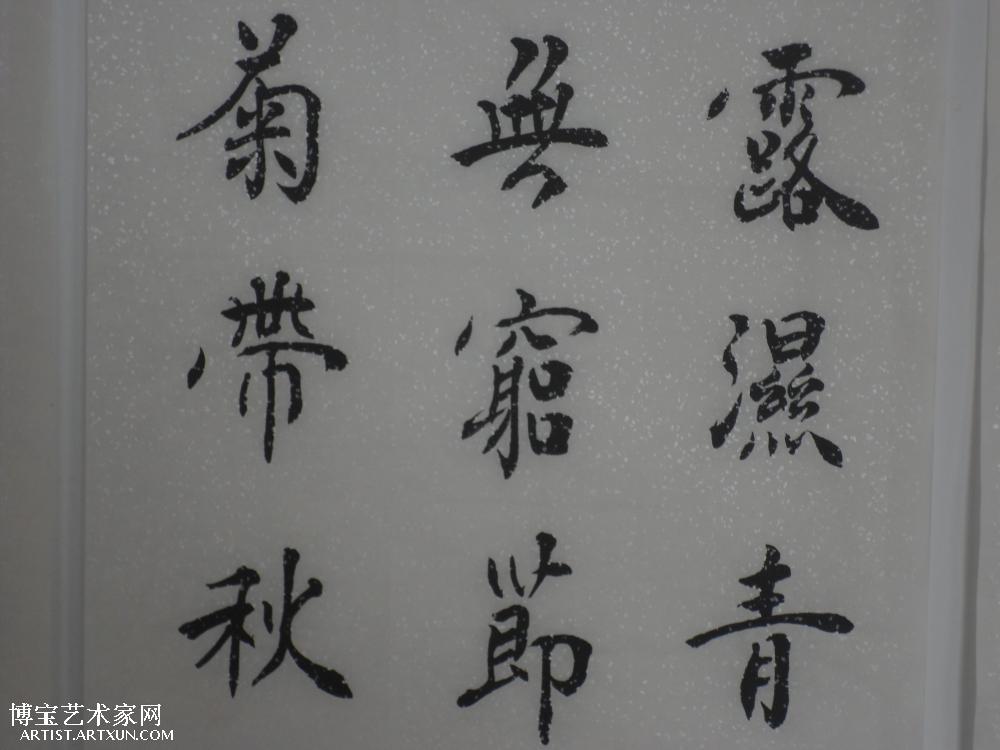 露濕青
無窮節
菊帶秋
博宝艺术家网
ARTIST.ARTXUN.COM